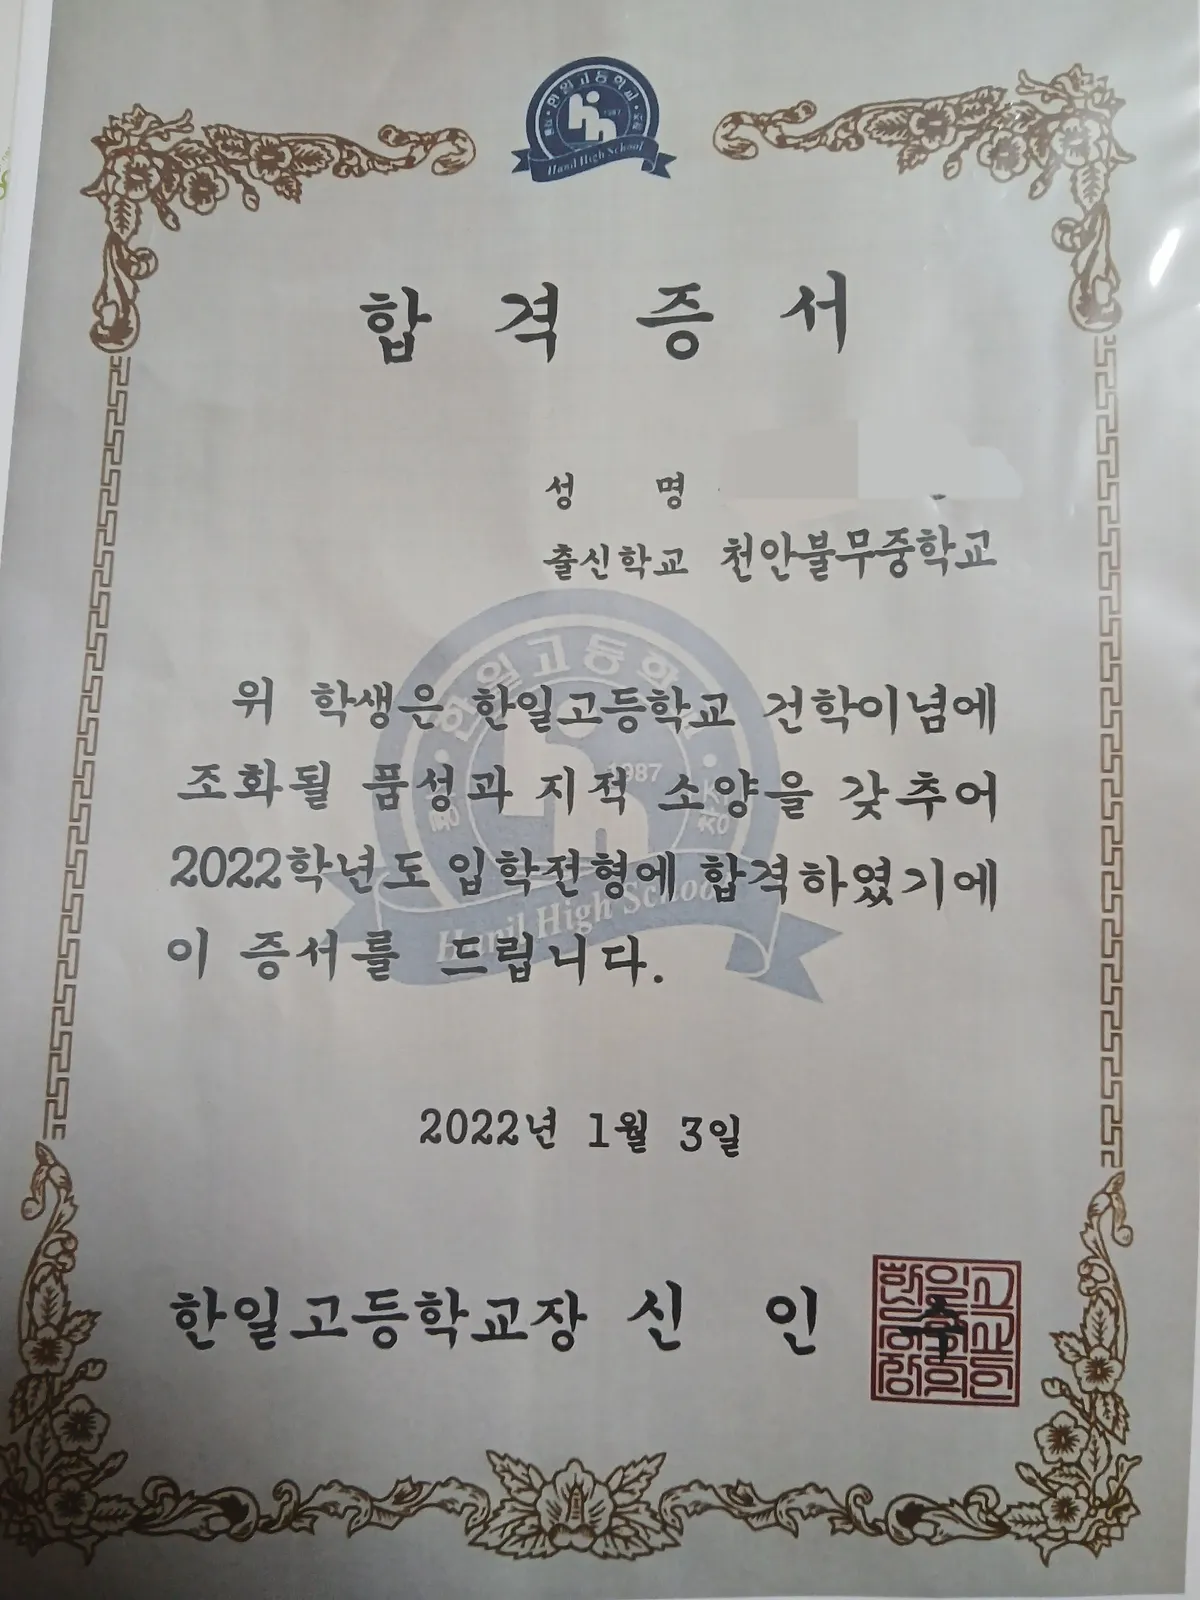 한일고등학교
1987
Hanil High School
합격증서
성 명
출신학교 천안불무중학교
위 학생은 한일고등학교 건학이념에
조화될 품성과 지적 소양을 갖추어
2022학년도 입학전형에 합격하였기에
이 증서를 드립니다.
한일고등학교
1987
창조
Hanil High School
2022년 1월 3일
한일고등학교장 신 인 수